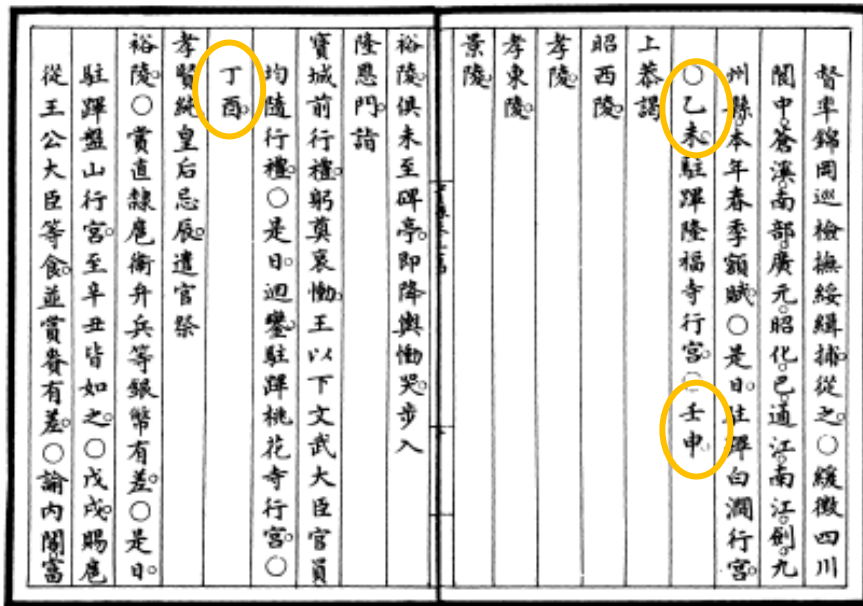 督率錦岡巡檢撫綏緝捕從之。○緩徵四川
閬中。蒼溪。南部。廣元。昭化。巴。通江。南江。劍。九
州縣。本年春季額賦。○是日。駐蹕白澗行宮。
○乙未。駐蹕隆福寺行宮。○壬申。
上恭謁
昭西陵。
孝陵。
孝東陵。
景陵。
裕陵。俱未至碑亭。即降輿慟哭。步入
隆恩門。詣
寶城前行禮。躬奠哀慟。王以下文武大臣官員
均隨行禮。○是日。迴鑾。駐蹕桃花寺行宮。○
丁酉。
孝賢純皇后忌辰。遣官祭
裕陵。○賞直隸扈衛弁兵等銀幣有差。○是日。
駐蹕盤山行宮。至辛丑皆如之。○戊戌。賜扈
從王公大臣等食。並賞賚有差。○諭內閣。富